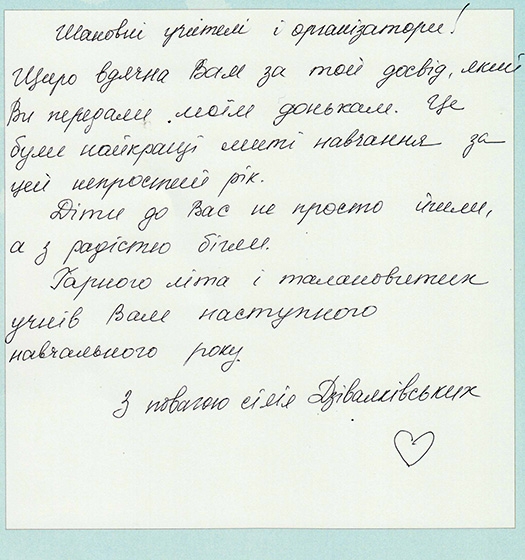 Шановні учителі і організатори!
Щиро вдячна Вам за той досвід, який
Ви передали моїм донькам. Це
були найкращі миті навчання за
цей непростий рік.
Діти до Вас не просто йшли,
а з радістю бігли.
Гарного літа і талановитих
учнів Вам наступного
навчального року.
З повагою сім'я Дзівалківських